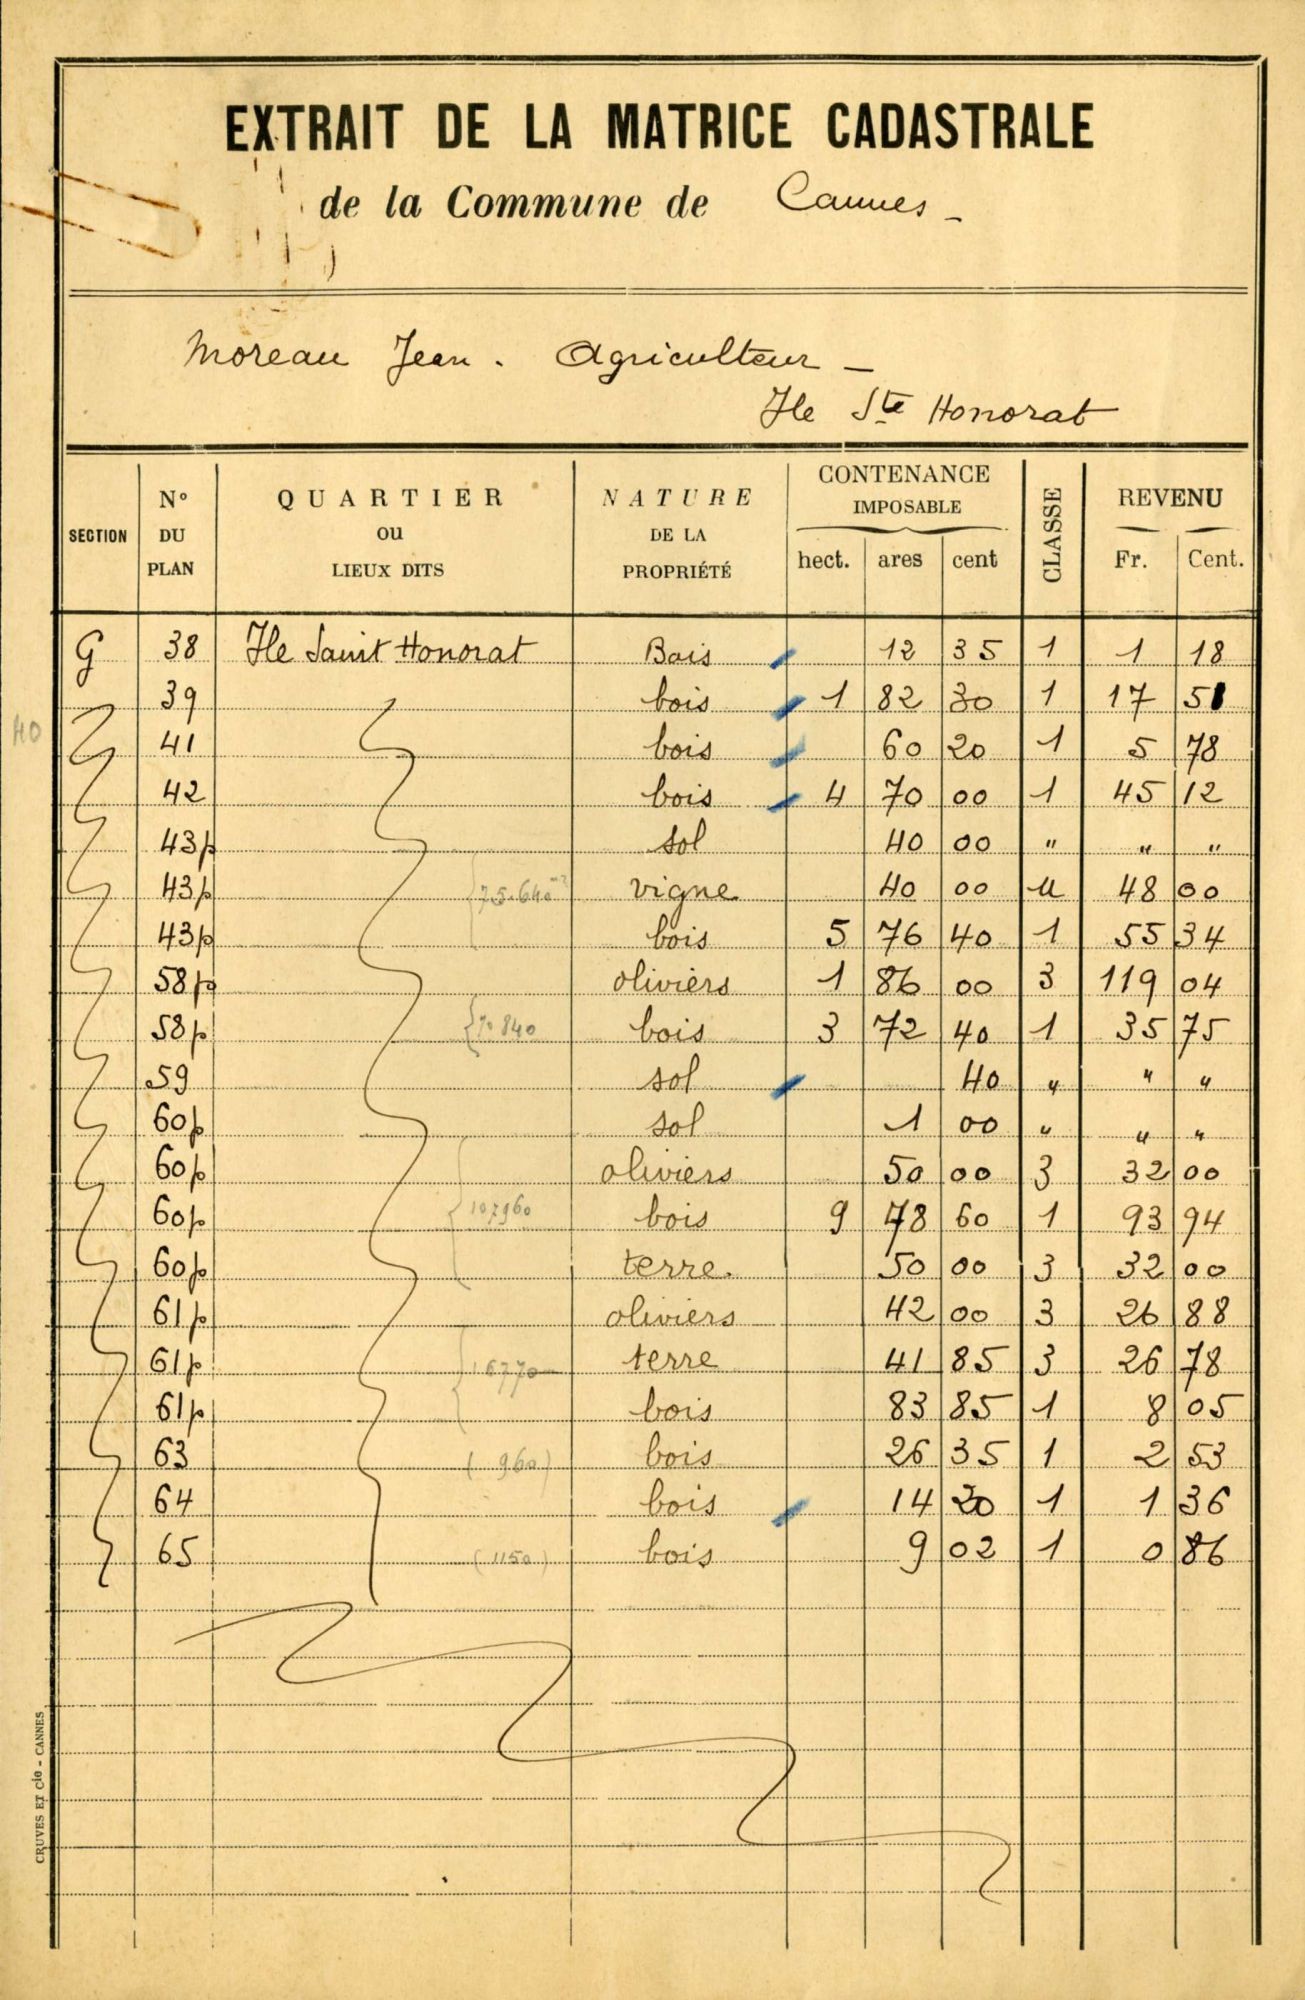 EXTRAIT DE LA MATRICE CADASTRALE
de la Commune de Cannes -
Moreau Jean. Agriculteur -
Ile Ste Honorat
SECTION
N° DU PLAN
QUARTIER OU LIEUX DITS
NATURE DE LA PROPRIÉTÉ
CONTENANCE IMPOSABLE
hect. ares cent
CLASSE
REVENU
Fr. Cent.
G 38 Ile Saint Honorat Bois 12 35 1 1 18
39 bois 1 82 30 1 17 51
40
41 bois 60 20 1 5 78
42 bois 4 70 00 1 45 12
43p sol 40 00 " " "
43p 75.640 m2 vigne 40 00 u 48 00
43p bois 5 76 40 1 55 34
58p oliviers 1 86 00 3 119 04
58p 70 840 bois 3 72 40 1 35 75
59 sol 40 " " "
60p sol 1 00 " " "
60p oliviers 50 00 3 32 00
60p 107960 bois 9 78 60 1 93 94
60p terre 50 00 3 32 00
61p oliviers 42 00 3 26 88
61p 16770 terre 41 85 3 26 78
61p bois 83 85 1 8 05
63 ( 960) bois 26 35 1 2 53
64 bois 14 20 1 1 36
65 (1150) bois 9 02 1 0 86
CRUVES ET Cie - CANNES